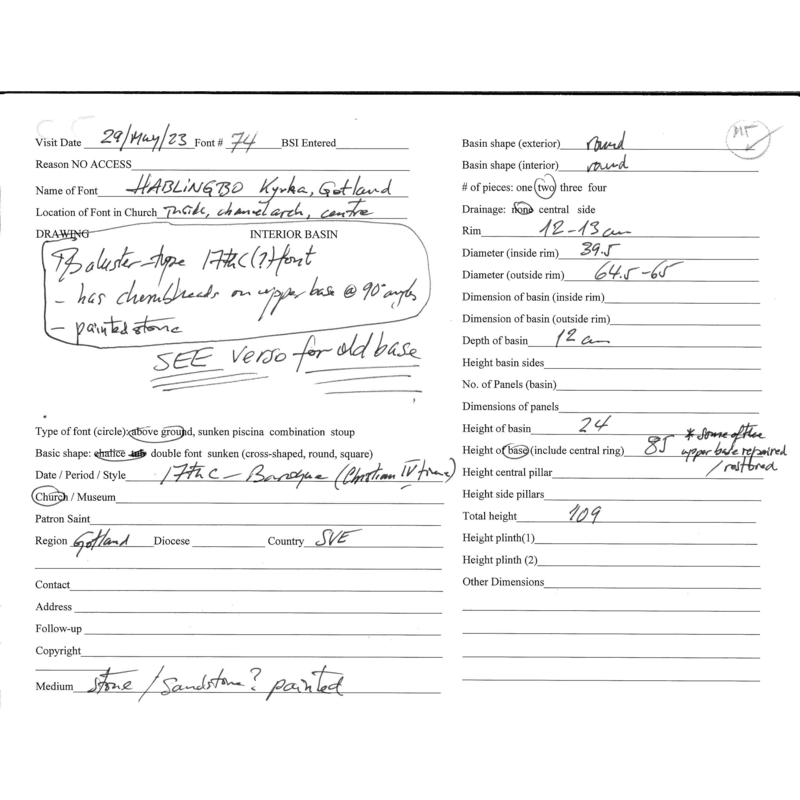 Visit Date 29/May/23 Font # 74 BSI Entered
Reason NO ACCESS
Name of Font HABLINGBO Kyrka, Gotland
Location of Font in Church Inside, chancel arch, centre
DRAWING INTERIOR BASIN
Baluster-type 17thC(?) font
- has cherubheads on upper base @ 90° angles
- painted stone
SEE verso for old base
Type of font (circle): above ground, sunken piscina combination stoup
Basic shape: chalice tub double font sunken (cross-shaped, round, square)
Date / Period / Style 17thC - Baroque (Christian IV time)
Church / Museum
Patron Saint
Region Gotland Diocese Country SVE
Contact
Address
Follow-up
Copyright
Medium stone / Sandstone? painted
MT
Basin shape (exterior) round
Basin shape (interior) round
# of pieces: one two three four
Drainage: none central side
Rim 12-13 cm
Diameter (inside rim) 39.5
Diameter (outside rim) 64.5-65
Dimension of basin (inside rim)
Dimension of basin (outside rim)
Depth of basin 12 cm
Height basin sides
No. of Panels (basin)
Dimensions of panels
Height of basin 24
Height of base (include central ring) 85 * some of the
upper base repaired
/ restored
Height central pillar
Height side pillars
Total height 109
Height plinth(1)
Height plinth (2)
Other Dimensions